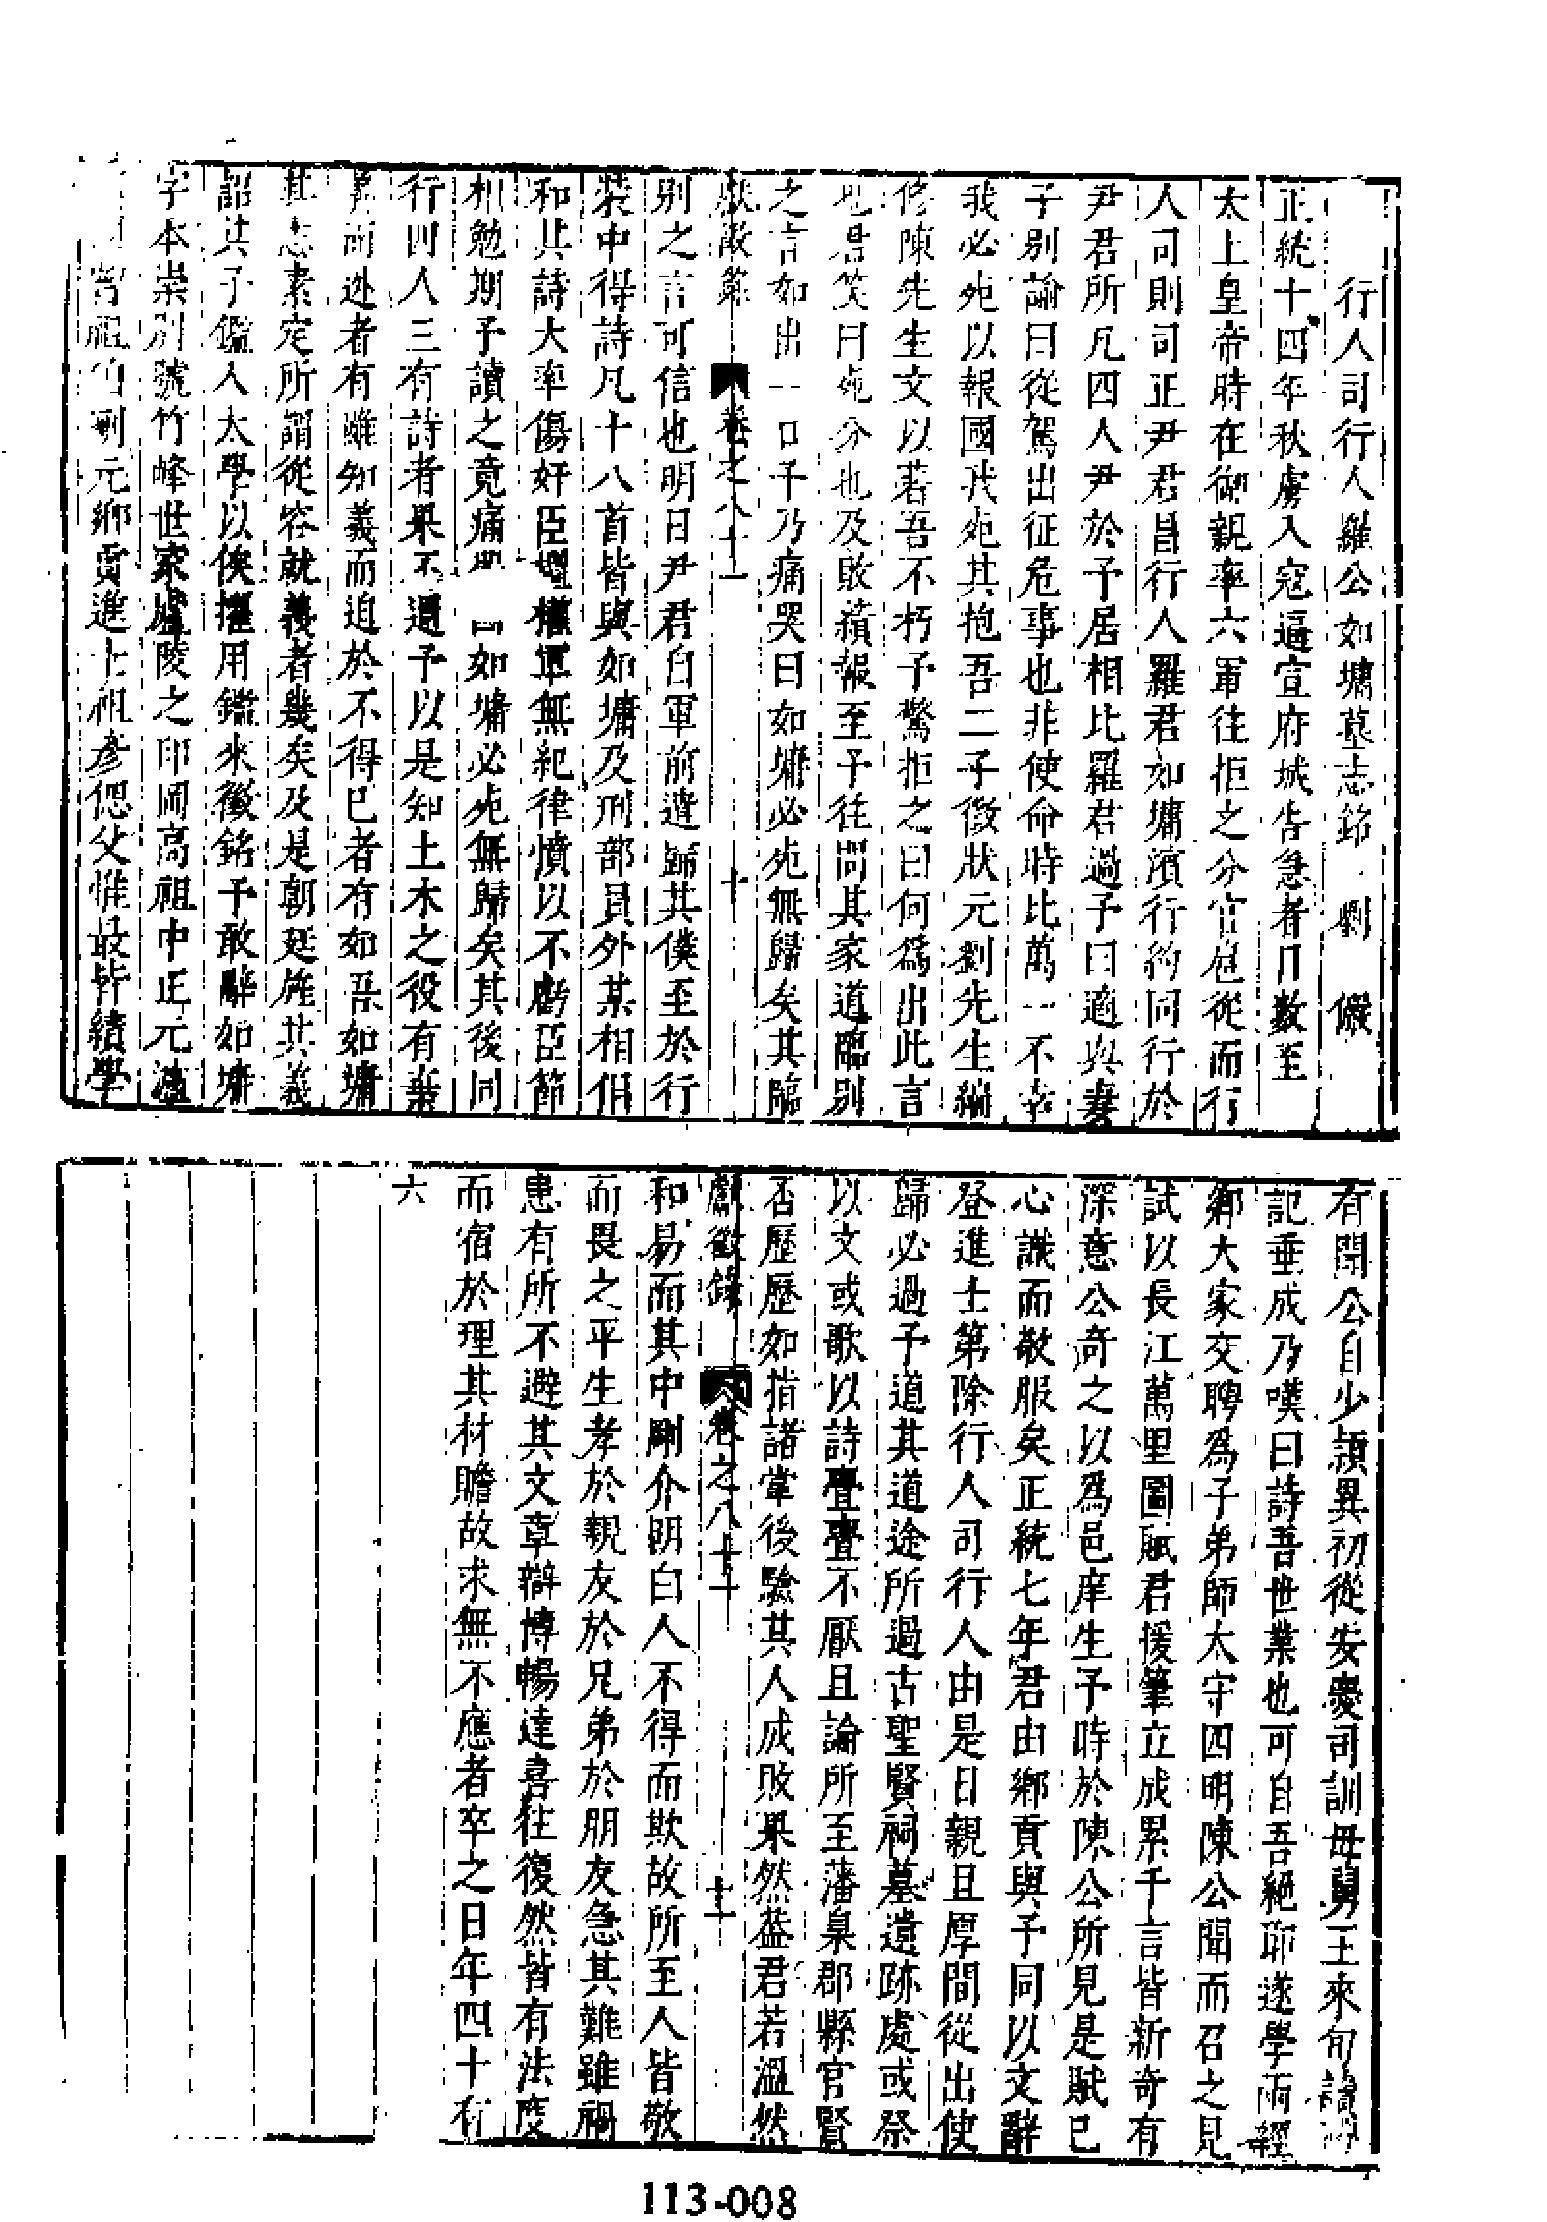 行人司行人羅公如墉墓志銘 劉儼
正統十四年秋虜入寇逼宣府城告急者日數至
太上皇帝時在御親率六軍往拒之分官扈從而行
人司則司正尹君昌行人羅君如墉濱行約同行於
尹君所凡四人尹於予居相比羅君過予曰適與妻
子別諭曰從駕出征危事也非使命時比萬一不幸
我必死以報國我死其抱吾二子徵狀元劉先生編
修陳先生文以葬吾不朽予驚拒之曰何為出此言
也君笑曰死分也及敗績報至予往問其家道臨別
之言如出一口予乃痛哭曰如墉必死無歸矣其臨
獻徵錄 卷之八十一 十
別之言可信也明日尹君自軍前遣歸其僕至於行
裝中得詩凡十八首皆與如墉及刑部員外某相倡
和其詩大率傷奸臣壇權軍無紀律憤以不虧臣節
相勉期予讀之竟痛 曰如墉必死無歸矣其後同
行四人三有詩者果不還予以是知土木之役有棄
軍而逃者有雖知義而迫於不得已者有如吾如墉
其志素定所謂從容就義者幾矣及是朝廷旌其義
詔其子鑑入太學以俟擢用鑑來徵銘予敢辭如墉
字本崇別號竹峰世家廬陵之印岡高祖中正元
曾祖伯剛元鄉貢進士祖彥偲父惟最皆績學
有聞公自少頴異初從安慶司訓母舅王來旬讀
記垂成乃嘆曰詩吾世業也可自吾絕耶遂學兩經
鄉大家交聘為子弟師太守四明陳公聞而召之見
試以長江萬里圖賦君援筆立成累千言皆新奇有
深意公奇之以為邑庠生予時於陳公所見是賦已
心識而敬服矣正統七年君由鄉貢與予同以文辭
登進士第除行人司行人由是日親且厚間從出使
歸必過予道其道途所過古聖賢祠墓遺跡處或祭
以文或歌以詩亹亹不厭且論所至藩臬郡縣官賢
否歷歷如指諸掌後驗其人成敗果然葢君若溫然
獻徵錄 卷之八十一 十一
和易而其中剛介明白人不得而欺故所至人皆敬
而畏之平生孝於親友於兄弟於朋友急其難雖禍
患有所不避其文章辯博暢達喜往復然皆有法度
而宿於理其材贍故求無不應者卒之日年四十有
六
113-008